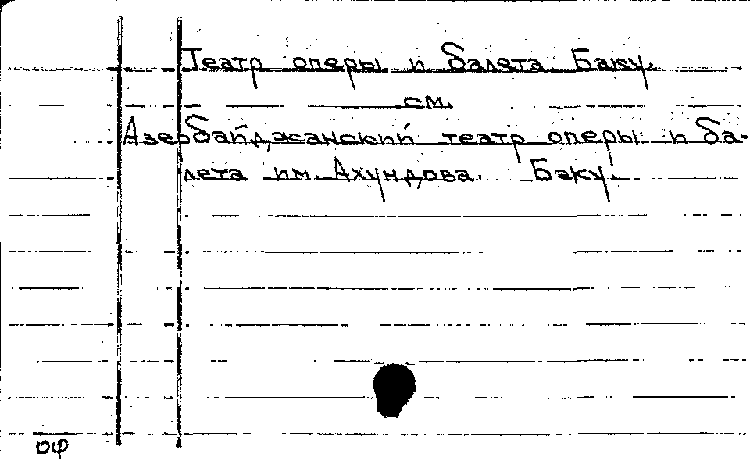 Театр оперы и балета. Баку.
см.
Азербайджанский театр оперы и ба-
лета им. Ахундова. Баку.
оф